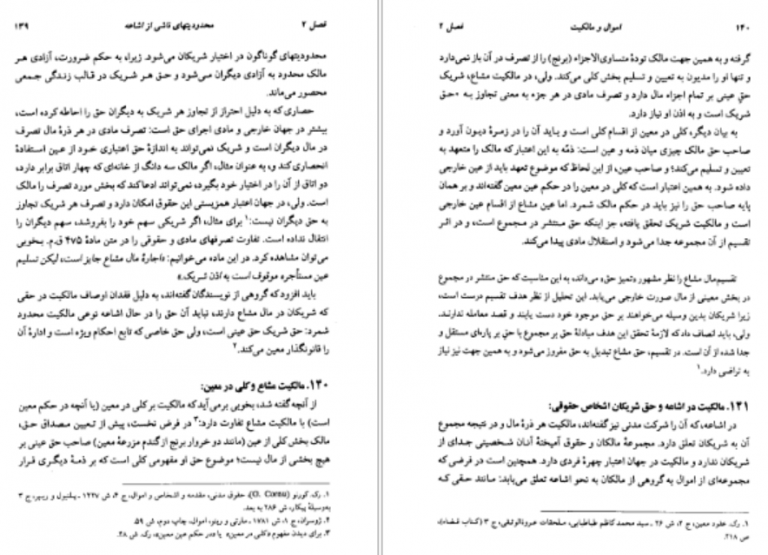 فصل ۲
محدودیتهای ناشی از اشاعه
۱۳۹
محدودیتهای گوناگون در اختیار شریکان می‌شوند. زیرا، به حکم ضرورت، آزادی هر
مالک محدود به آزادی دیگران می‌شود و حق هر شریک در قالب زندگی جمعی
محصور می‌ماند.
حصاری که به دلیل احتراز از تجاوز هر شریک به دیگران حق را احاطه کرده است،
بیشتر در جهان خارجی و مادی اجرای حق است: تصرف مادی در هر ذرهٔ مال تصرف
در مال دیگران است و شریک نمی‌تواند به اندازهٔ حق اعتباری خود از عین استفادهٔ
انحصاری کند و، به عنوان مثال، اگر مالک سه دانگ از خانه‌ای که چهار اتاق برابر دارد،
دو اتاق از آن را در اختیار خود بگیرد، نمی‌تواند ادعا کند که بخش مورد تصرف را مالک
است. ولی، در جهان اعتبار همزیستی این حقوق امکان دارد و تصرف هر شریک تجاوز
به حق دیگران نیست:۱ برای مثال، اگر شریکی سهم خود را بفروشد، سهم دیگران را
انتقال نداده است. تفاوت تصرفهای مادی و حقوقی را در متن مادهٔ ۴۷۵ ق.م. بخوبی
می‌توان مشاهده کرد. در این ماده می‌خوانیم: «اجارهٔ مال مشاع جایز است، لیکن تسلیم
عین مستأجره موقوف است به اذن شریک.»
باید افزود که گروهی از نویسندگان گفته‌اند، به دلیل فقدان اوصاف مالکیت در حقی
که شریکان در مال مشاع دارند، نباید آن حق را در حال اشاعه نوعی مالکیت محدود
شمرد: حق شریک حق عینی است، ولی حق خاصی که تابع احکام ویژه است و ادارهٔ آن
را قانونگذار معین می‌کند.۲
۱۴۰. مالکیت مشاع و کلی در معین:
از آنچه گفته شد، بخوبی برمی‌آید که مالکیت بر کلی در معین (یا آنچه در حکم معین
است) با مالکیت مشاع تفاوت دارد:۳ در فرض نخست، پیش از تعیین مصداق حق،
مالک بخش کلی از عین (مانند دو خروار برنج از گندم مزرعهٔ معین) صاحب حق عینی بر
هیچ بخشی از مال نیست؛ موضوع حق او مفهومی کلی است که بر ذمهٔ دیگری قرار
۱. رک. کورنو (G. Cornu)، حقوق مدنی، مقدمه و اشخاص و اموال، ج ۲، ش ۱۲۲۷ ـ پلنیول و ریپر، ج ۳
به‌وسیلهٔ پیکار، ش ۲۸۶ به بعد.
۲. ژوسران، ج ۱، ش ۱۷۸۱ ـ مارتی و رینو، اموال، چاپ دوم، ش ۵۹.
۳. برای دیدن مفهوم «کلی در معین» یا «در حکم عین معین»، رک. ش ۲۸.
۱۴۰
اموال و مالکیت
فصل ۲
گرفته و به همین جهت مالک تودهٔ متساوی‌الاجزاء (برنج) را از تصرف در آن باز نمی‌دارد
و تنها او را مدیون به تعیین و تسلیم بخش کلی می‌کند. ولی، در مالکیت مشاع، شریک
حق عینی بر تمام اجزاء مال دارد و تصرف مادی در هر جزء به معنی تجاوز به حق
شریک است و به اذن او نیاز دارد.
به بیان دیگر، کلی در معین از اقسام کلی است و باید آن را در زمرهٔ دیون آورد و
صاحب حق مالک چیزی میان ذمه و عین است: ذمّه به این اعتبار که مالک را متعهد به
تعیین و تسلیم می‌کند؛ و صاحب عین، از این لحاظ که موضوع تعهد باید از عین خارجی
داده شود. به همین اعتبار است که کلی در معین را در حکم عین معین گفته‌اند و بر همان
پایه صاحب حق را نیز باید در حکم مالک شمرد. اما عین مشاع از اقسام عین خارجی
است و مالکیت شریک تحقق یافته، جز اینکه حق منتشر در مجموع است، و در اثر
تقسیم از آن مجموعه جدا می‌شود و استقلال مادی پیدا می‌کند.
تقسیم مال مشاع را نظر مشهور «تمیز حق» می‌داند، به این مناسبت که حق منتشر در مجموع
در بخش معینی از مال صورت خارجی می‌یابد. این تحلیل از نظر هدف تقسیم درست است،
زیرا شریکان بدین وسیله می‌خواهند بر حق موجود خود دست یابند و قصد معامله ندارند.
ولی، باید انصاف داد که لازمهٔ تحقق این هدف مبادلهٔ حق بر مجموع با حق بر پاره‌ای مستقل و
جدا شده از آن است. در تقسیم، حق مشاع تبدیل به حق مفروز می‌شود و به همین جهت نیز نیاز
به تراضی دارد.۱
۱۴۱. مالکیت در اشاعه و حق شریکان اشخاص حقوقی:
در اشاعه، که آن را شرکت مدنی نیز گفته‌اند، مالکیت هر ذرهٔ مال و در نتیجه مجموع
آن به شریکان تعلق دارد. مجموعهٔ مالکان و حقوق آمیختهٔ آنان شخصیتی جدای از
شریکان ندارد و مالکیت در جهان اعتبار چهرهٔ فردی دارد. همچنین است در فرضی که
مجموعه‌ای از اموال به گروهی از مالکان به نحو اشاعه تعلق می‌یابد: مانند حقی که
۱. رک. عقود معین، ج ۲، ش ۲۶ ـ سید محمد کاظم طباطبایی، ملحقات عروةالوثقی، ج ۳ (کتاب قضاء)،
ص ۲۱۸.